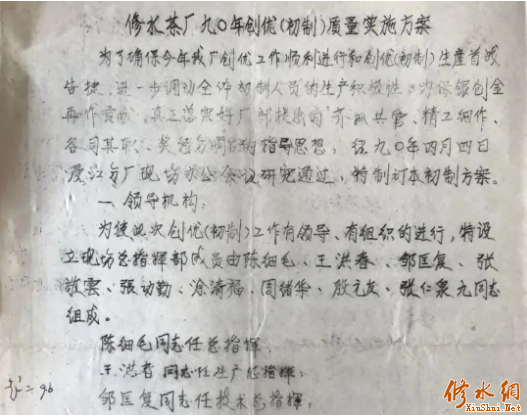 修水茶厂九〇年创优(初制)质量实施方案
为了确保今年我厂创优工作顺利进行和创优(初制)生产首战
告捷,进一步调动全体初制人员的生产积极性,为保银创金
再作贡献,真正落实好厂部提出的"齐抓共管、精工细作、
各司其职、奖罚分明"的指导思想,经九〇年四月四日
漫江分厂现场办公会议研究通过,特制订本初制方案。
一、领导机构:
为使此次创优(初制)工作有领导、有组织的进行,特设
立现场总指挥部成员由陈细毛、王洪春、邹匡复、张
放云、张功勤、涂清福、周绪华、殷元友、张仁泉九同志
组成。
陈细毛同志任总指挥,
王洪春同志任生产总指挥,
邹匡复同志任技术总指挥,
=96
修水網
XiuShui.Net